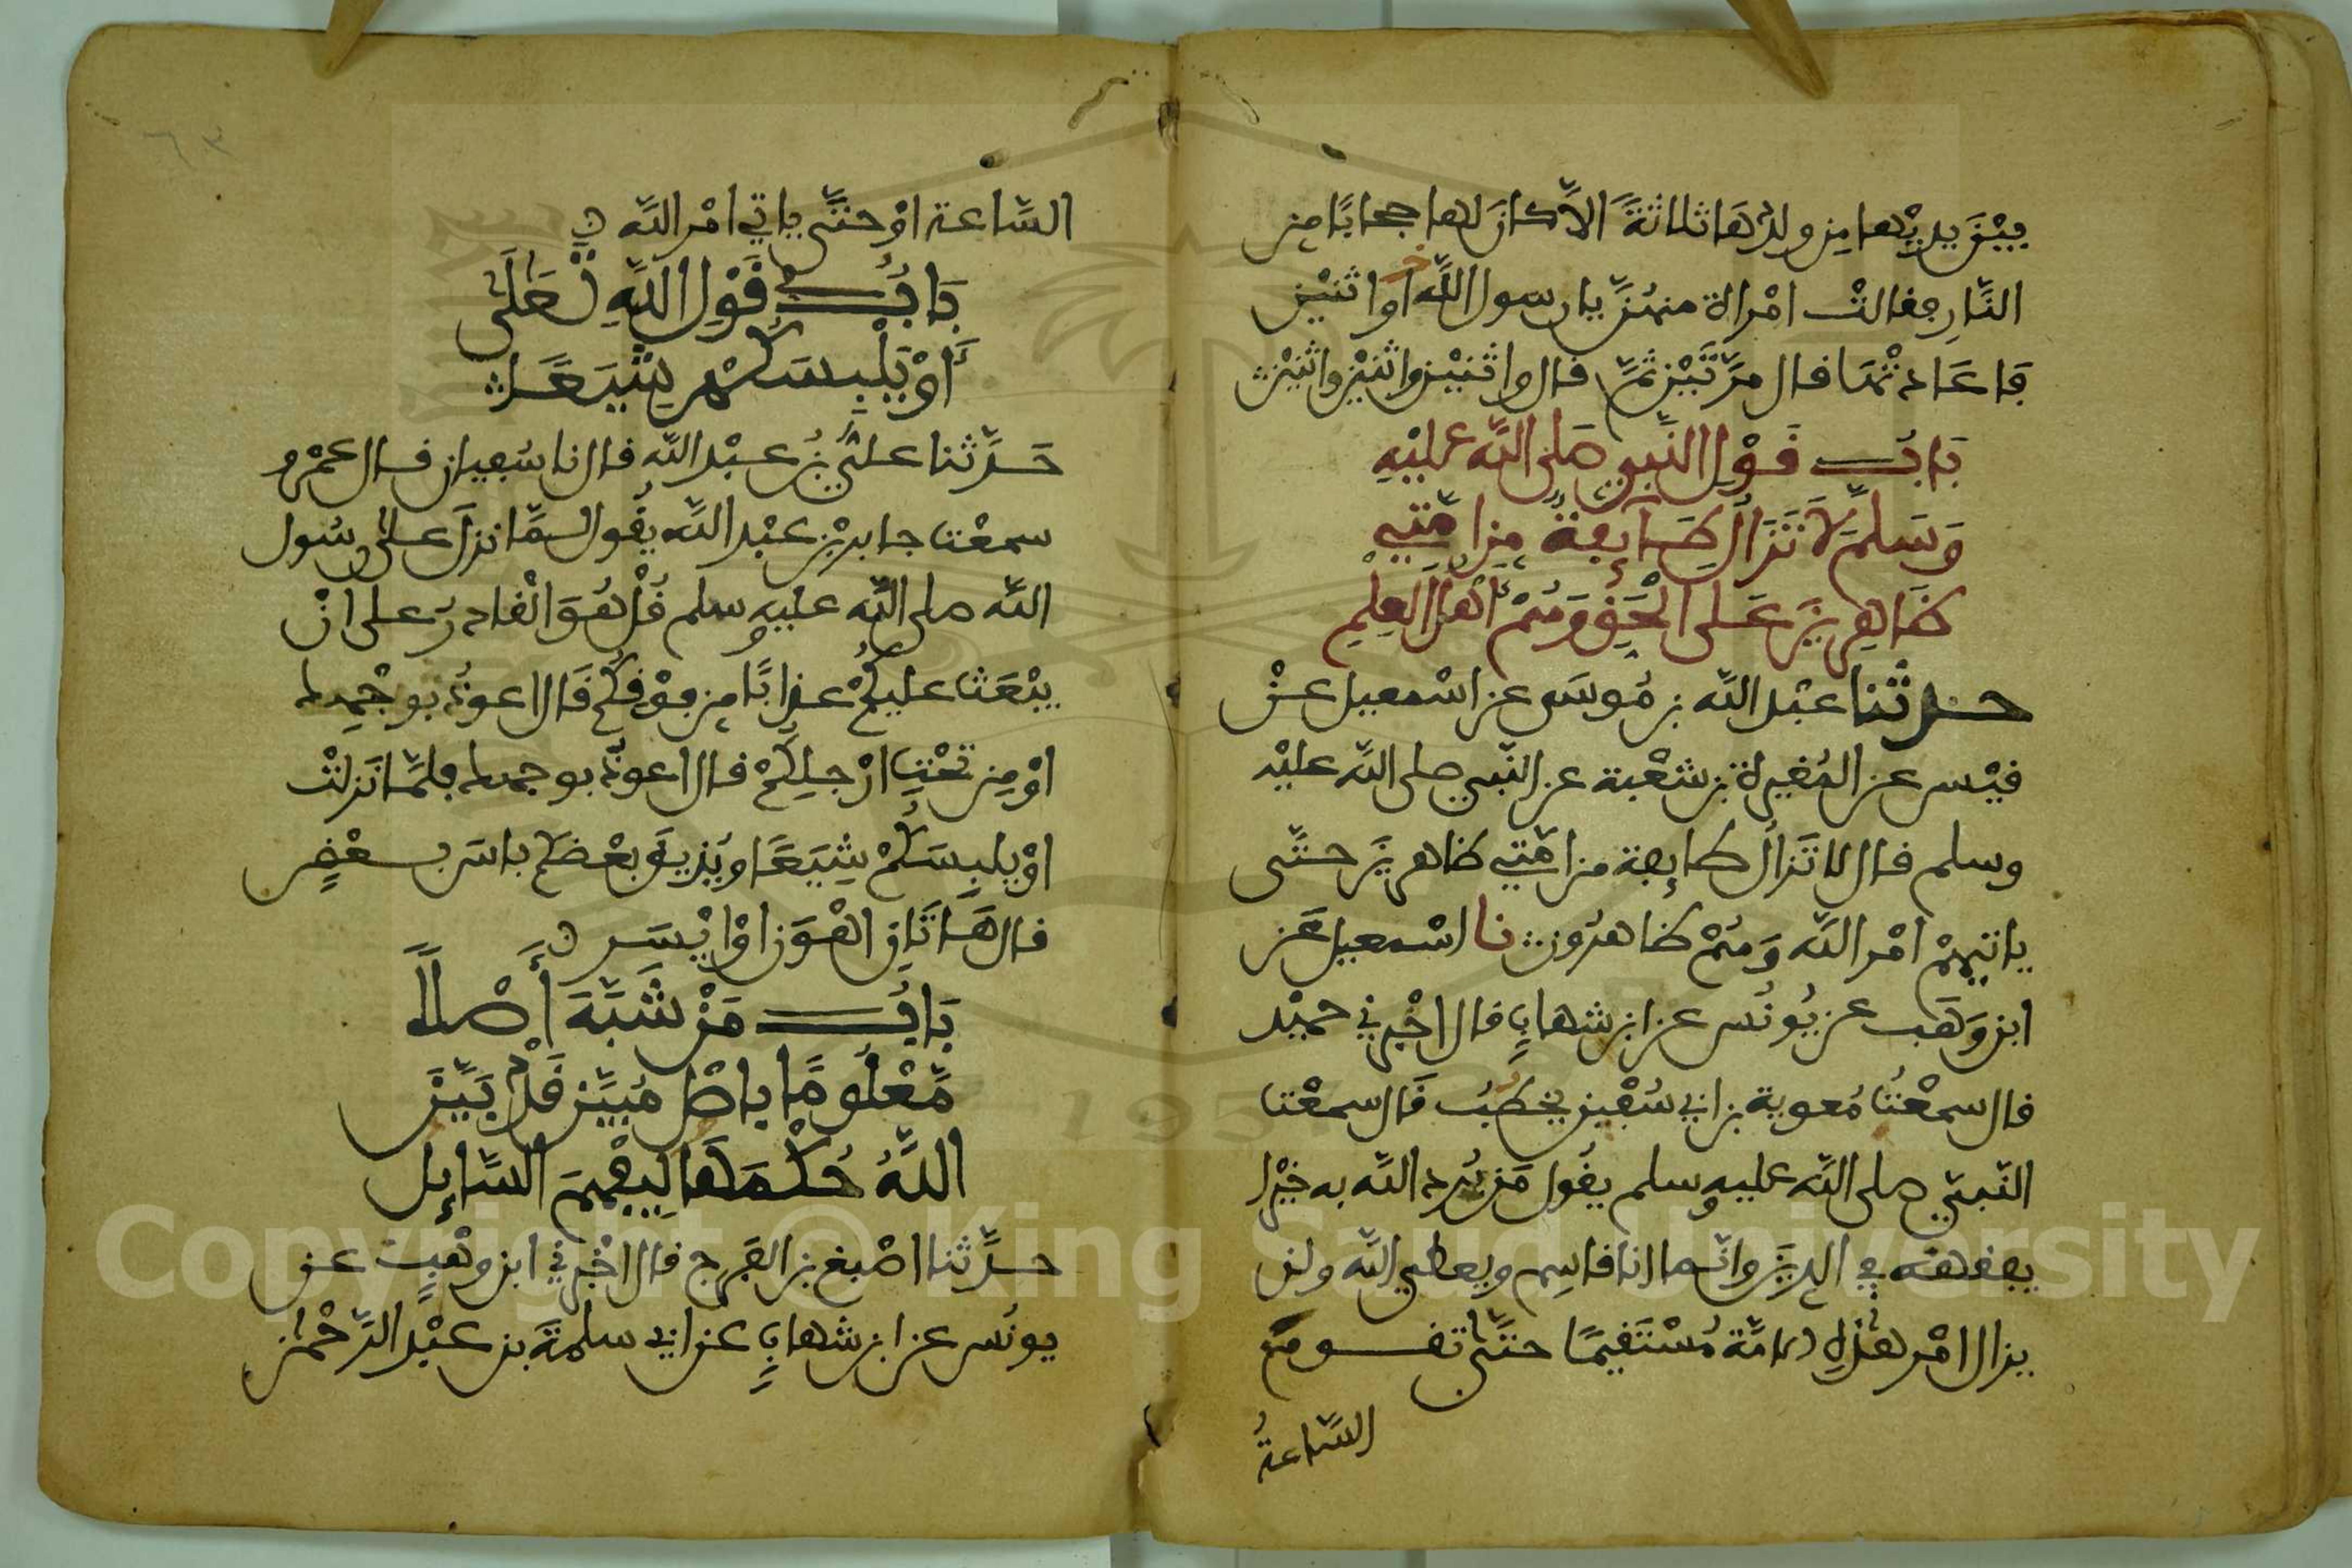 بيْنَ يديْها مِن ولدِهَا ثلاثةً الاَّ كانَ لها حجابًا من
النَّارِ فقالتْ امْراة منهُنَّ يا رسول اللَّه او اثنيْن
فَاعَادَتْهَا قال مرَّتَيْن ثمَّ قال واثنيْن واثنيْن واثنيْن
بَابُ قَوْلِ النَّبيِ صَلى اللَّه عليْهِ
وَسَلمَ لاَ تَزَالُ طَآيِفةٌ مِن امَّتِي
ظَاهِرِينَ عَلى الْحَقِ وَهُمْ أَهْلُ العِلْمِ
حدثنا عبْد اللَّه بن مُوسَى عن اسْمعيل عنْ
قيْس عن المُغيرة بن شعْبة عن النَّبي صلى اللَّه عليْه
وسلم قال لا تَزالُ طايفة من امَّتي ظاهرينَ حتَّى
ياتيهمْ امْر اللَّه وَهُمْ ظاهرُون نا اسْمعيل عَن
ابن وَهَب عن يُونُس عن ابن شهابٍ قال اخْبرني حميْد
قال سمعْتُ مُعوية بن ابي سُفْين يخطُبُ قَال سمعْت
النَّبيَّ صلى اللَّه عليه وسلم يقُول مَن يُرِد اللَّه به خيْرا
يفقهْه في الدينِ وانَّما انا قاسِم ويعطي اللَّه ولن
يزال امْر هٰذِهِ الامَّة مُسْتَقيمًا حتَّى تقوم
السَّاعةُ
السَّاعة اوْ حتَّى ياتي امْر اللَّه
بَابُ قَوْلِ اللَّهِ تَعَلَى
أَوْ يَلْبِسَكُمْ شِيَعًا
حَدَّثنا عليُّ بْنُ عبْد اللَّه قال نا سُفيان قال عمْرو
سمعْت جابر بْن عبْد اللَّه يقُول لمَّا نزلَ على رسُول
اللَّه صلى اللَّه عليه وسلم قُلْ هُوَ الْقادرُ على انْ
يبْعَث عليكُمْ عذابًا من فوْقكُمْ قَال اعوذُ بوجْهِك
اوْ مِن تحْتِ ارْجلِكُمْ قال اعوذُ بوجهك فلمَّا نَزلتْ
اوْ يلبِسَكُمْ شِيَعًا ويُذيقَ بعْضكُم باسَ بعْضٍ
قال هَاتَانِ اهْوَن اوْ ايْسَر
بَابُ مَنْ شَبَّهَ أَصْلاً
مَّعْلُومًا باصْل مُبيَّن قَدْ بَيَّنَ
اللَّهُ حُكْمَهَا لِيفْهَمَ السَّايِل
حدَّثنا اصْبغ بن الفَرج قال اخْبرني ابن وهْبٍ عن
يونُس عن ابن شهابٍ عن ابي سلمةَ بن عبْد الرَّحْمٰن
٦٣
Copyright © King Saud University
1957